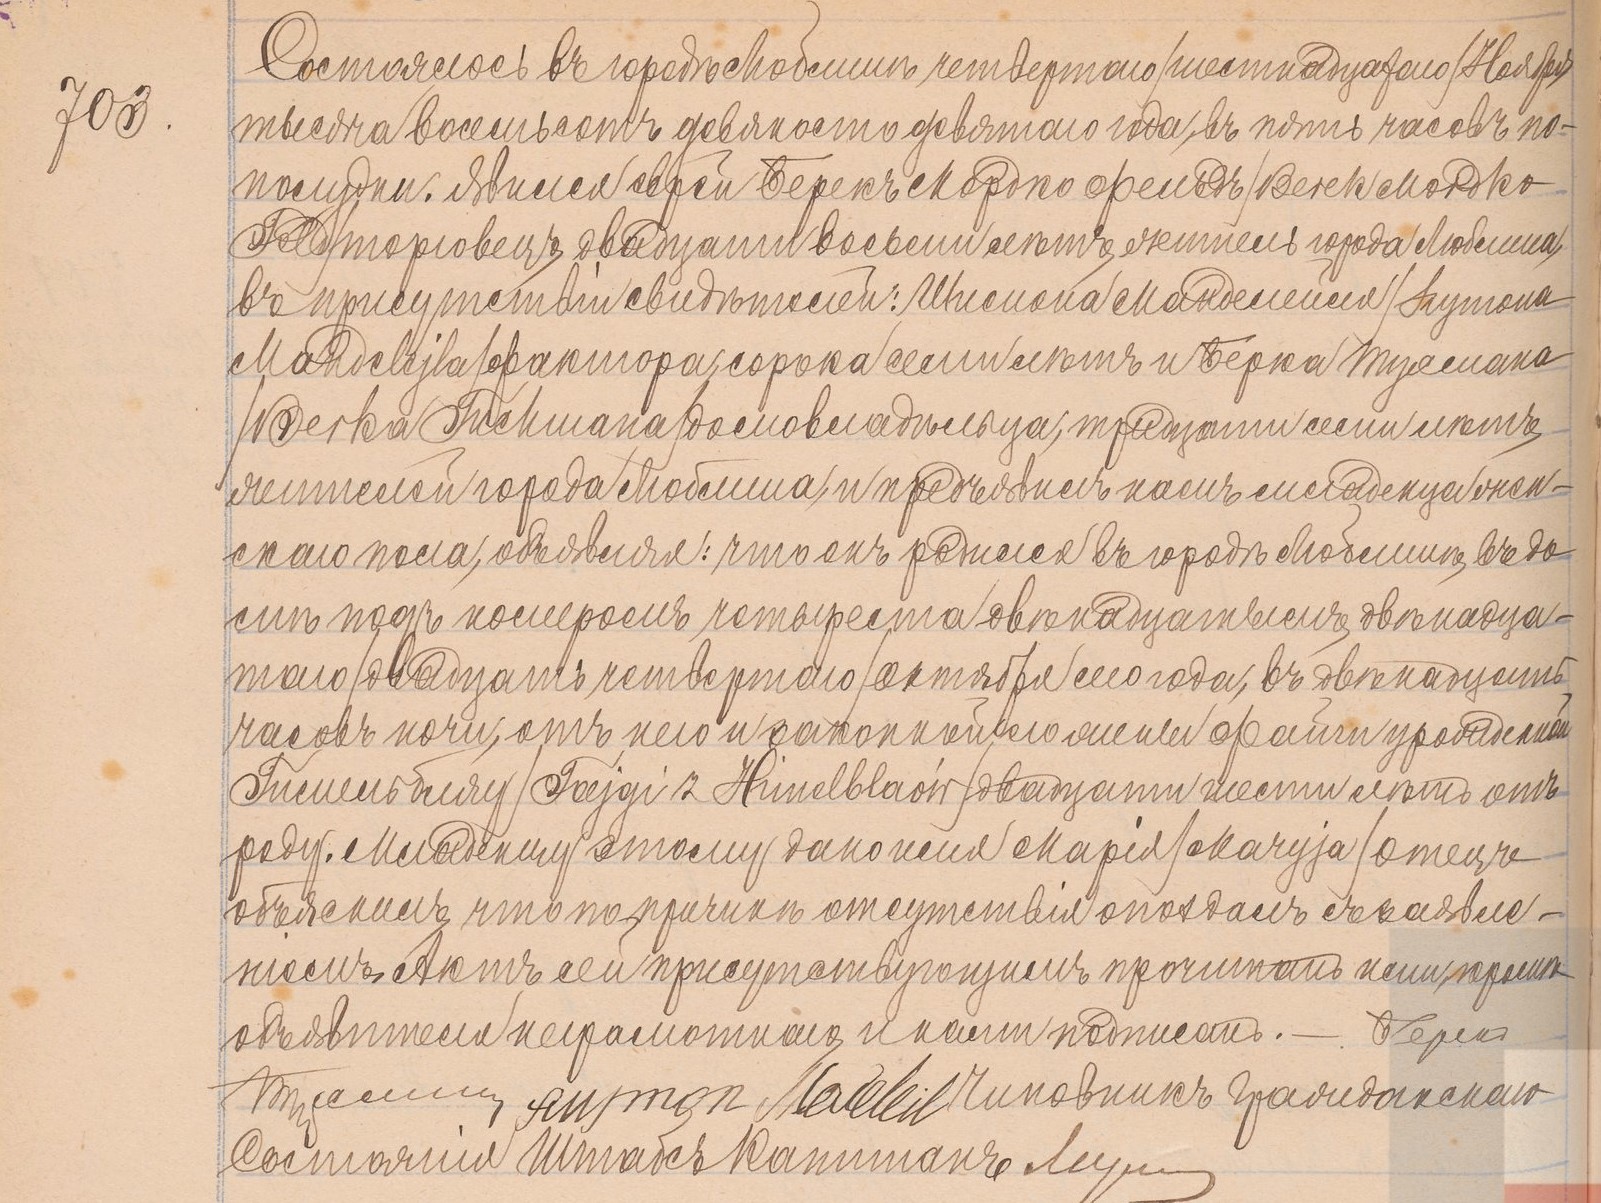 703.
Состоялось въ городѣ Люблинѣ четвертаго /шестнадцатаго/ Ноября
тысяча восемьсотъ девяносто девятаго года, въ пять часовъ по-
полудни. Явился еврей Берекъ Мордко Фельдъ /Berek Mordko
Feld/ торговецъ, двадцати восьми лѣтъ, житель города Люблина,
въ присутствіи свидѣтелей: Шимона Мандельейля /Szymona
Mandelejla/ фактора, сорока семи лѣтъ и Берка Тухмана
/Berka Tuchmana/ домовладѣльца, тридцати семи лѣтъ,
жителей города Люблина, и предъявилъ намъ младенца жен-
скаго пола, объявляя: что онъ родился въ городѣ Люблинѣ, въ до
мѣ подъ номеромъ четыреста двѣнадцатымъ, двѣнадца-
таго /двадцать четвертаго/ Октября сего года, въ двѣнадцать
часовъ ночи, отъ него и законной его жены Файги урожденной
Гимельблау /Fajgi z Himelblaów/ двадцати шести лѣтъ отъ
роду. Младенцу этому дано имя Марія /Maryja/ Отецъ
объяснилъ, что по причинѣ отсутствія опоздалъ съ заявле-
ніемъ. Актъ сей присутствующимъ прочитанъ ими, кромѣ
объявителя неграмотнаго, и нами подписанъ. — Берек
Чиновникъ Гражданскаго
Состоянія Штабсъ Капитанъ